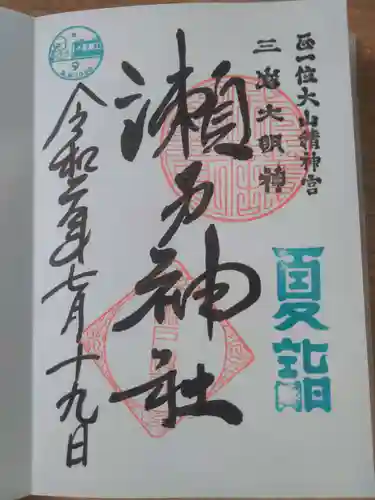 正一位大山積神宮
三島大明神
夏詣
瀬戸神社
令和六年七月十九日
9